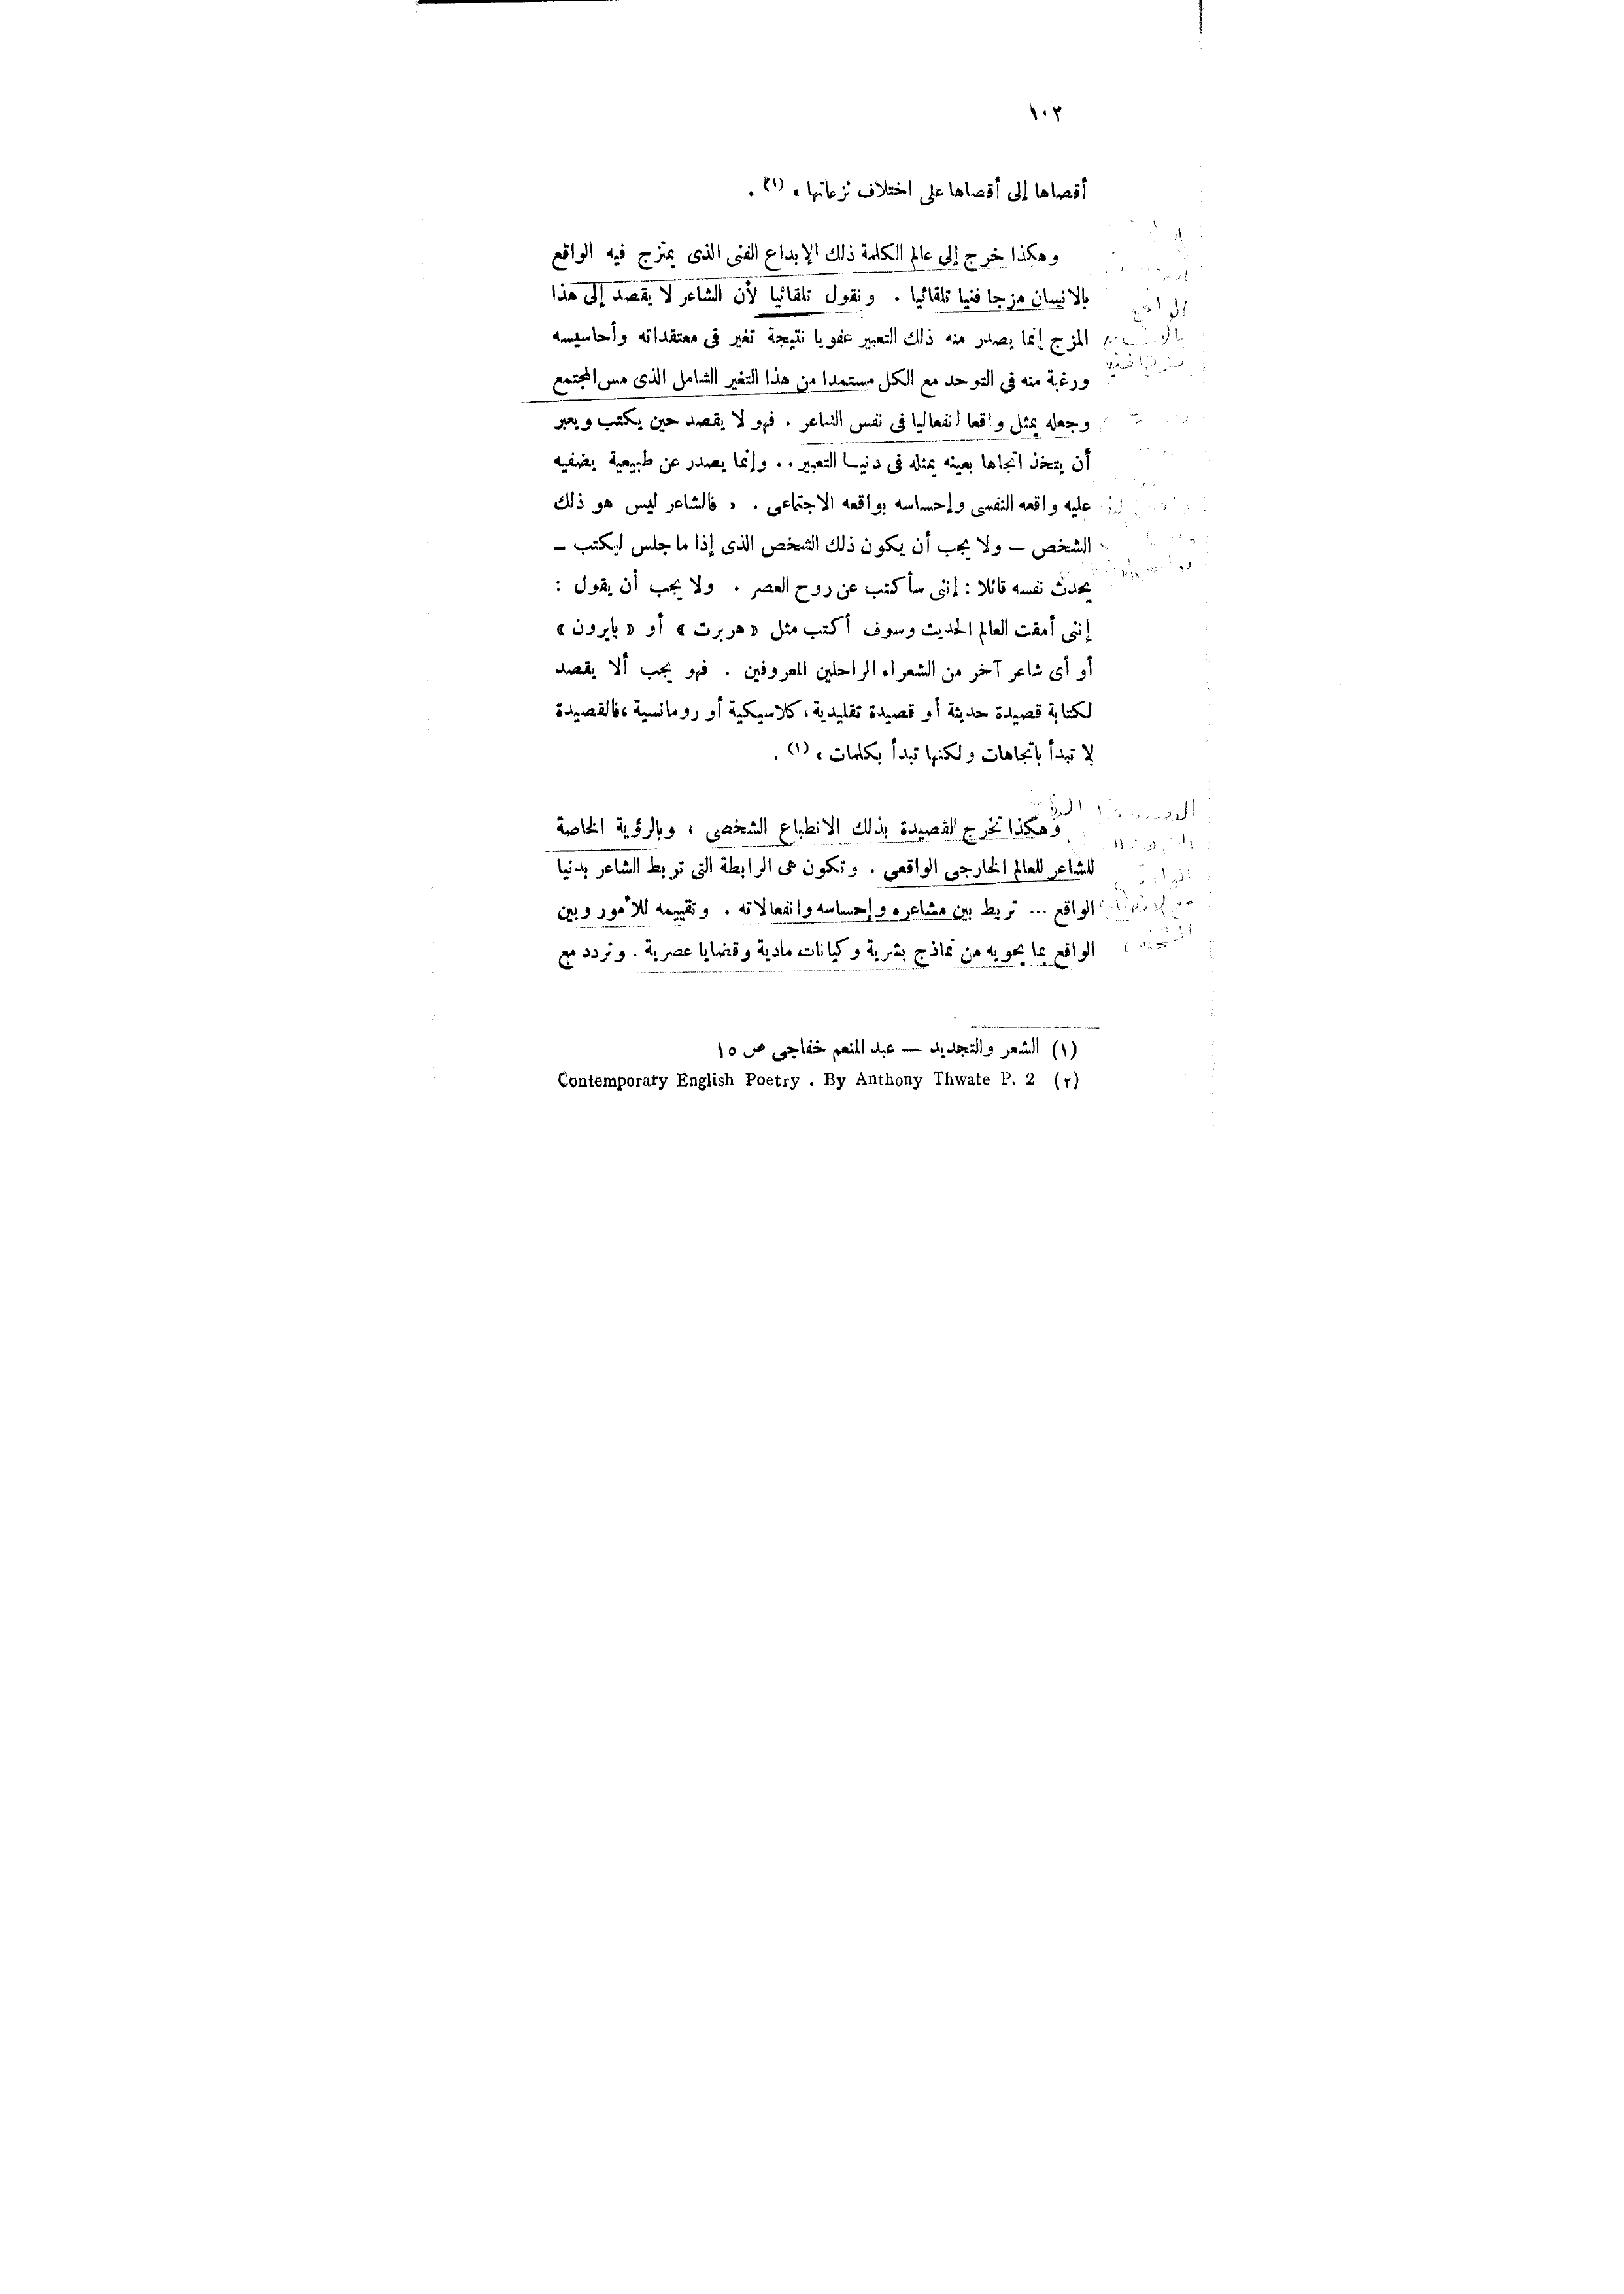 ١٠٢
أقصاها إلى أقصاها على اختلاف نزعاتها » (١) .
وهكذا خرج إلى عالم الكلمة ذلك الإبداع الفنى الذى يمتزج فيه الواقع
بالانسان مزجا فنيا تلقائيا . ونقول تلقائيا لأن الشاعر لا يقصد إلى هذا
المزج إنما يصدر منه ذلك التعبير عفويا نتيجة تغير فى معتقداته وأحاسيسه
ورغبة منه فى التوحد مع الكل مستمدا من هذا التغير الشامل الذى مس المجتمع
وجعله يمثل واقعا انفعاليا فى نفس الشاعر . فهو لا يقصد حين يكتب ويعبر
أن يتخذ اتجاها بعينه يمثله فى دنيا التعبير .. وإنما يصدر عن طبيعية يضفيه
عليه واقعه النفسى وإحساسه بواقعه الاجتماعى . « فالشاعر ليس هو ذلك
الشخص – ولا يجب أن يكون ذلك الشخص الذى إذا ما جلس ليكتب –
يحدث نفسه قائلا : إننى سأكتب عن روح العصر . ولا يجب أن يقول :
إننى أمقت العالم الحديث وسوف أكتب مثل « هربرت » أو « بايرون »
أو أى شاعر آخر من الشعراء الراحلين المعروفين . فهو يجب ألا يقصد
لكتابة قصيدة حديثة أو قصيدة تقليدية ، كلاسيكية أو رومانسية ، فالقصيدة
لا تبدأ باتجاهات ولكنها تبدأ بكلمات » (١) .
وهكذا تخرج القصيدة بذلك الانطباع الشخصى ، وبالرؤية الخاصة
للشاعر للعالم الخارجى الواقعى . وتكون هى الرابطة التى تربط الشاعر بدنيا
الواقع ... تربط بين مشاعره وإحساسه وانفعالاته . وتقييمه للأمور وبين
الواقع بما يحويه من نماذج بشرية وكيانات مادية وقضايا عصرية . وتردد مع
(١) الشعر والتجديد — عبد المنعم خفاجى ص ١٥
(٢) Contemporary English Poetry . By Anthony Thwate P. 2